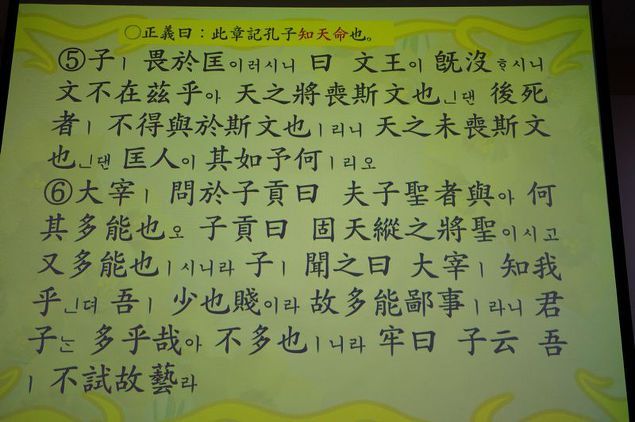 ○正義曰：此章記孔子知天命也。
⑤子ㅣ 畏於匡이러시니 曰 文王이 旣沒ᄒᆞ시니
文不在茲乎아 天之將喪斯文也ㅣㄴ댄 後死
者ㅣ 不得與於斯文也ㅣ리니 天之未喪斯文
也ㅣㄴ댄 匡人이 其如予何ㅣ리오
⑥大宰ㅣ 問於子貢曰 夫子聖者與아 何
其多能也오 子貢曰 固天縱之將聖이시고
又多能也ㅣ시니라 子ㅣ 聞之曰 大宰ㅣ 知我
乎ㅣㄴ뎌 吾ㅣ 少也賤이라 故多能鄙事ㅣ라니 君
子ᄂᆞᆫ 多乎哉아 不多也ㅣ니라 牢曰 子云 吾
ㅣ 不試故藝라